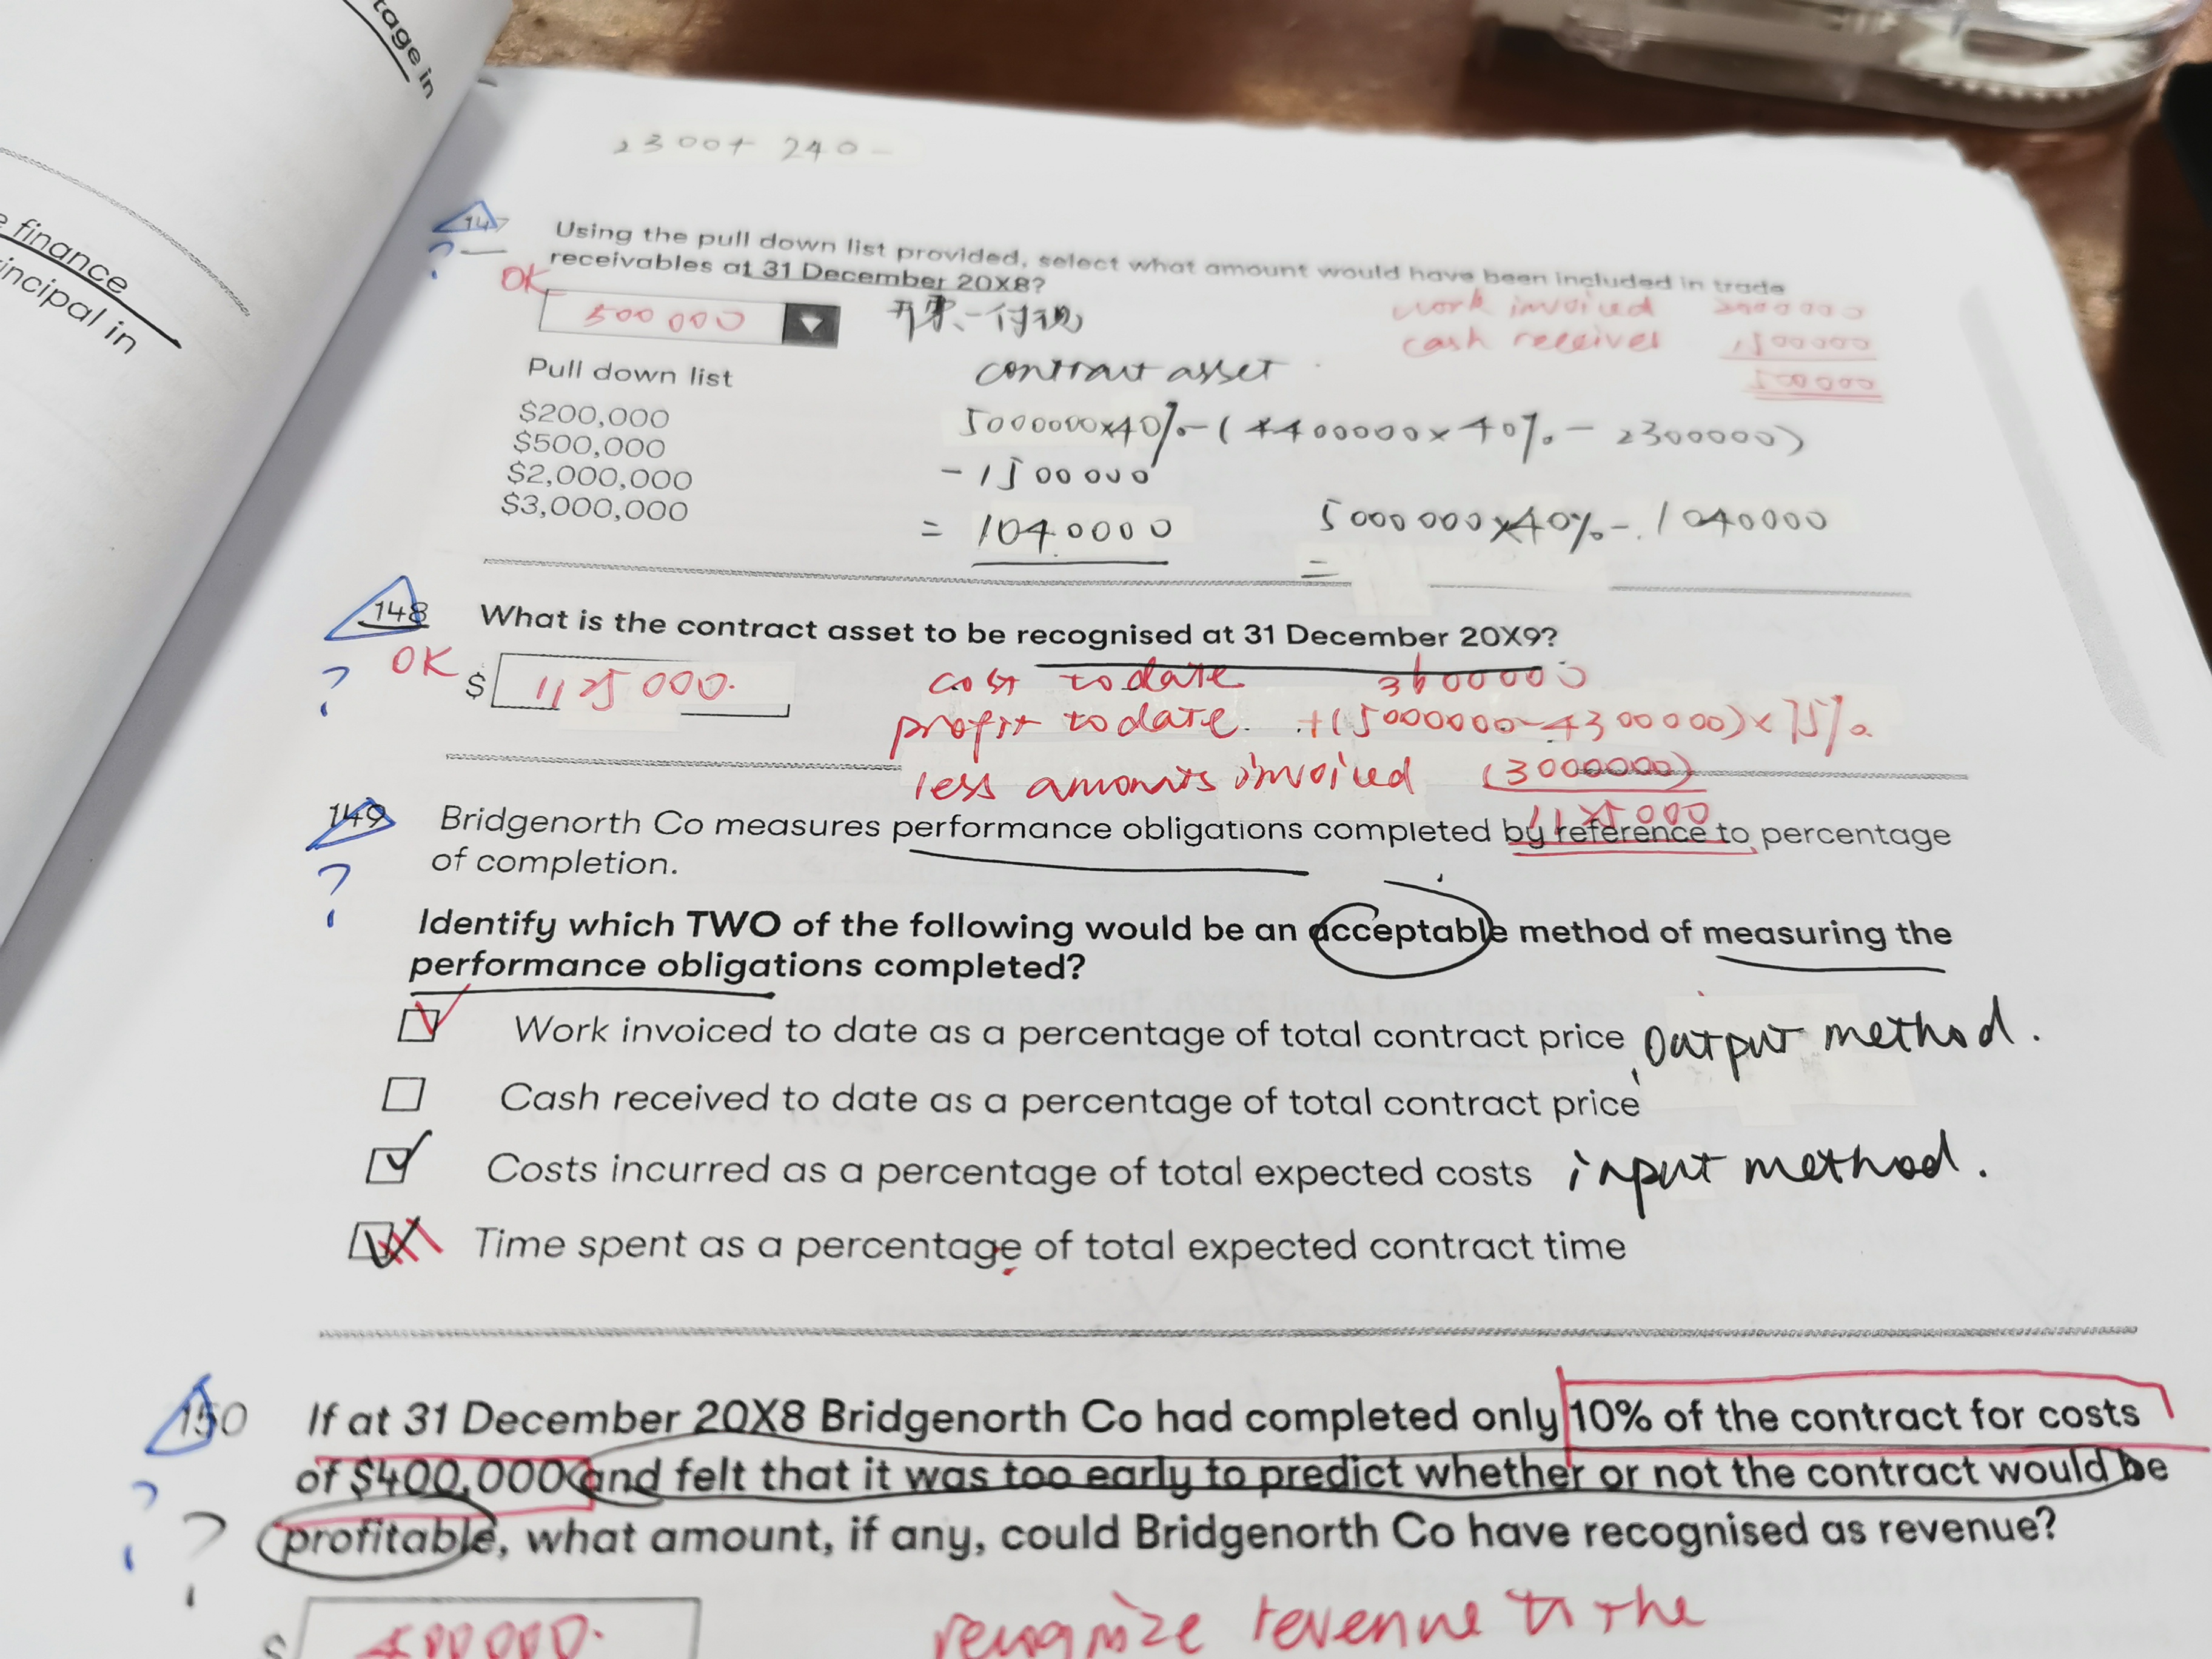 tage in
e finance
incipal in
2300+ 240-
147 Using the pull down list provided, select what amount would have been included in trade
receivables at 31 December 20X8?
OK
500000
work invoiced 2000000
cash receives 1500000
500000
Pull down list
$200,000
$500,000
$2,000,000
$3,000,000
contract asset
5000000×40%-(4400000×40%-2300000)
-1500000
= 1040000
5000000×40%-1040000
=
148 What is the contract asset to be recognised at 31 December 20X9?
?
OK $ 1125000.
cost to date 3600000
profit to date. +(5000000-4300000)×75%
less amounts invoiced (3000000)
1125000
149 Bridgenorth Co measures performance obligations completed by reference to percentage
of completion.
?
Identify which TWO of the following would be an acceptable method of measuring the
performance obligations completed?
Work invoiced to date as a percentage of total contract price output method.
Cash received to date as a percentage of total contract price
Costs incurred as a percentage of total expected costs input method.
Time spent as a percentage of total expected contract time
150 If at 31 December 20X8 Bridgenorth Co had completed only 10% of the contract for costs
of $400,000 and felt that it was too early to predict whether or not the contract would be
profitable, what amount, if any, could Bridgenorth Co have recognised as revenue?
? ?
$ 400000.
recognize revenue to the